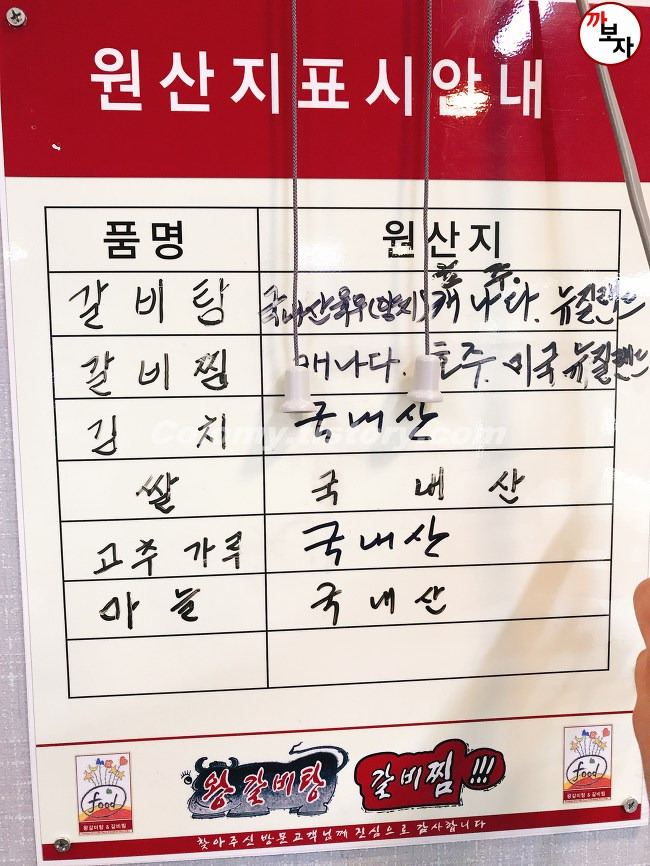 까
보
자
원산지표시안내
품명 원산지
호 주.
갈비탕 국내산육우(양지) 캐나다. 뉴질랜드
갈비찜 캐나다. 호주. 미국 뉴질랜드
김 치 국내산
쌀 국내산
고추가루 국내산
마늘 국내산
food
왕갈비탕 & 갈비찜
왕갈비탕 갈비찜!!!
food
왕갈비탕 & 갈비찜
찾아주신 방문고객님께 진심으로 감사합니다